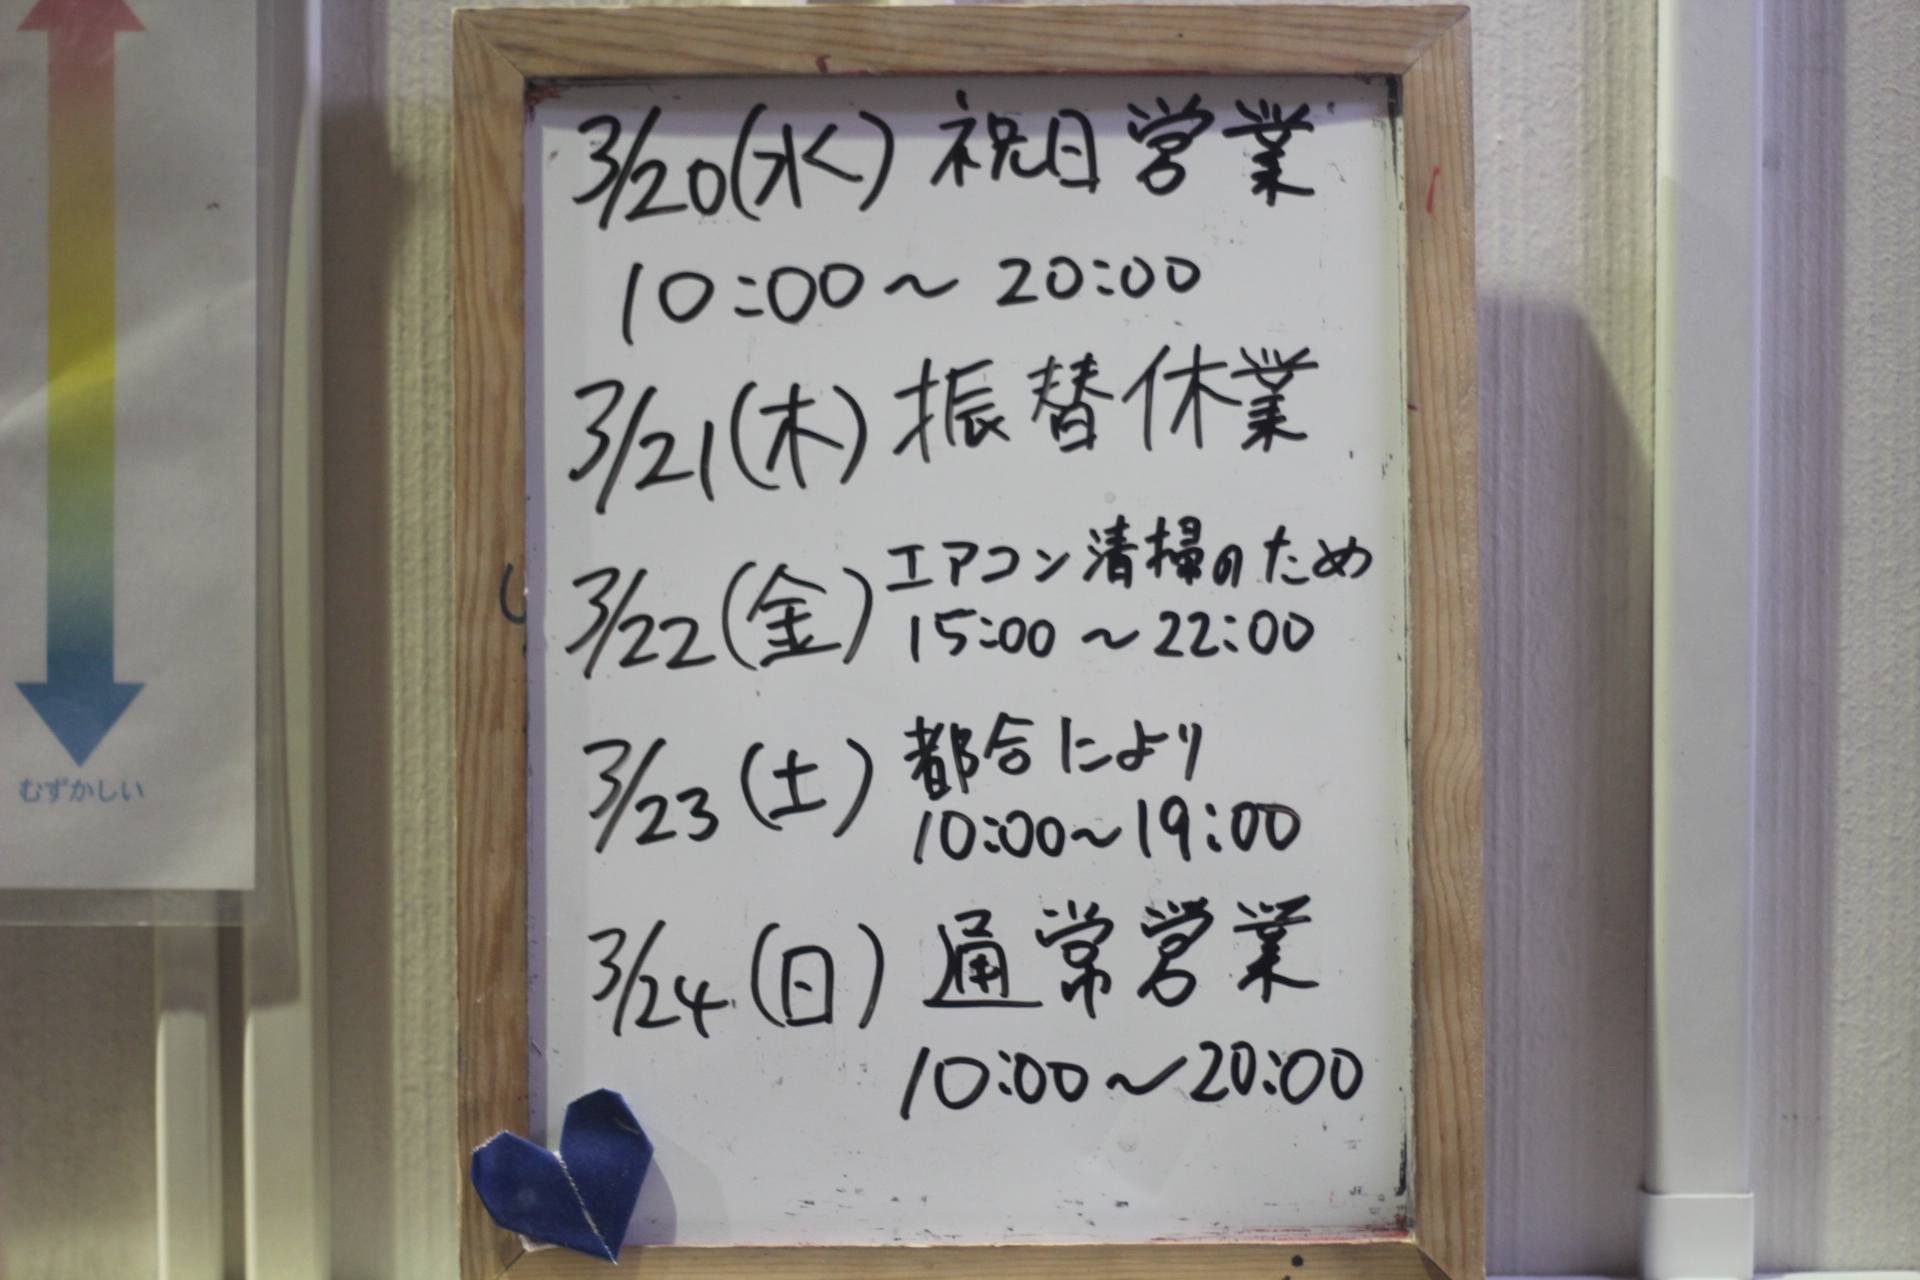 3/20(水) 祝日営業
10:00～20:00
3/21(木) 振替休業
3/22(金) エアコン清掃のため
15:00～22:00
3/23(土) 都合により
10:00～19:00
3/24(日) 通常営業
10:00～20:00
むずかしい